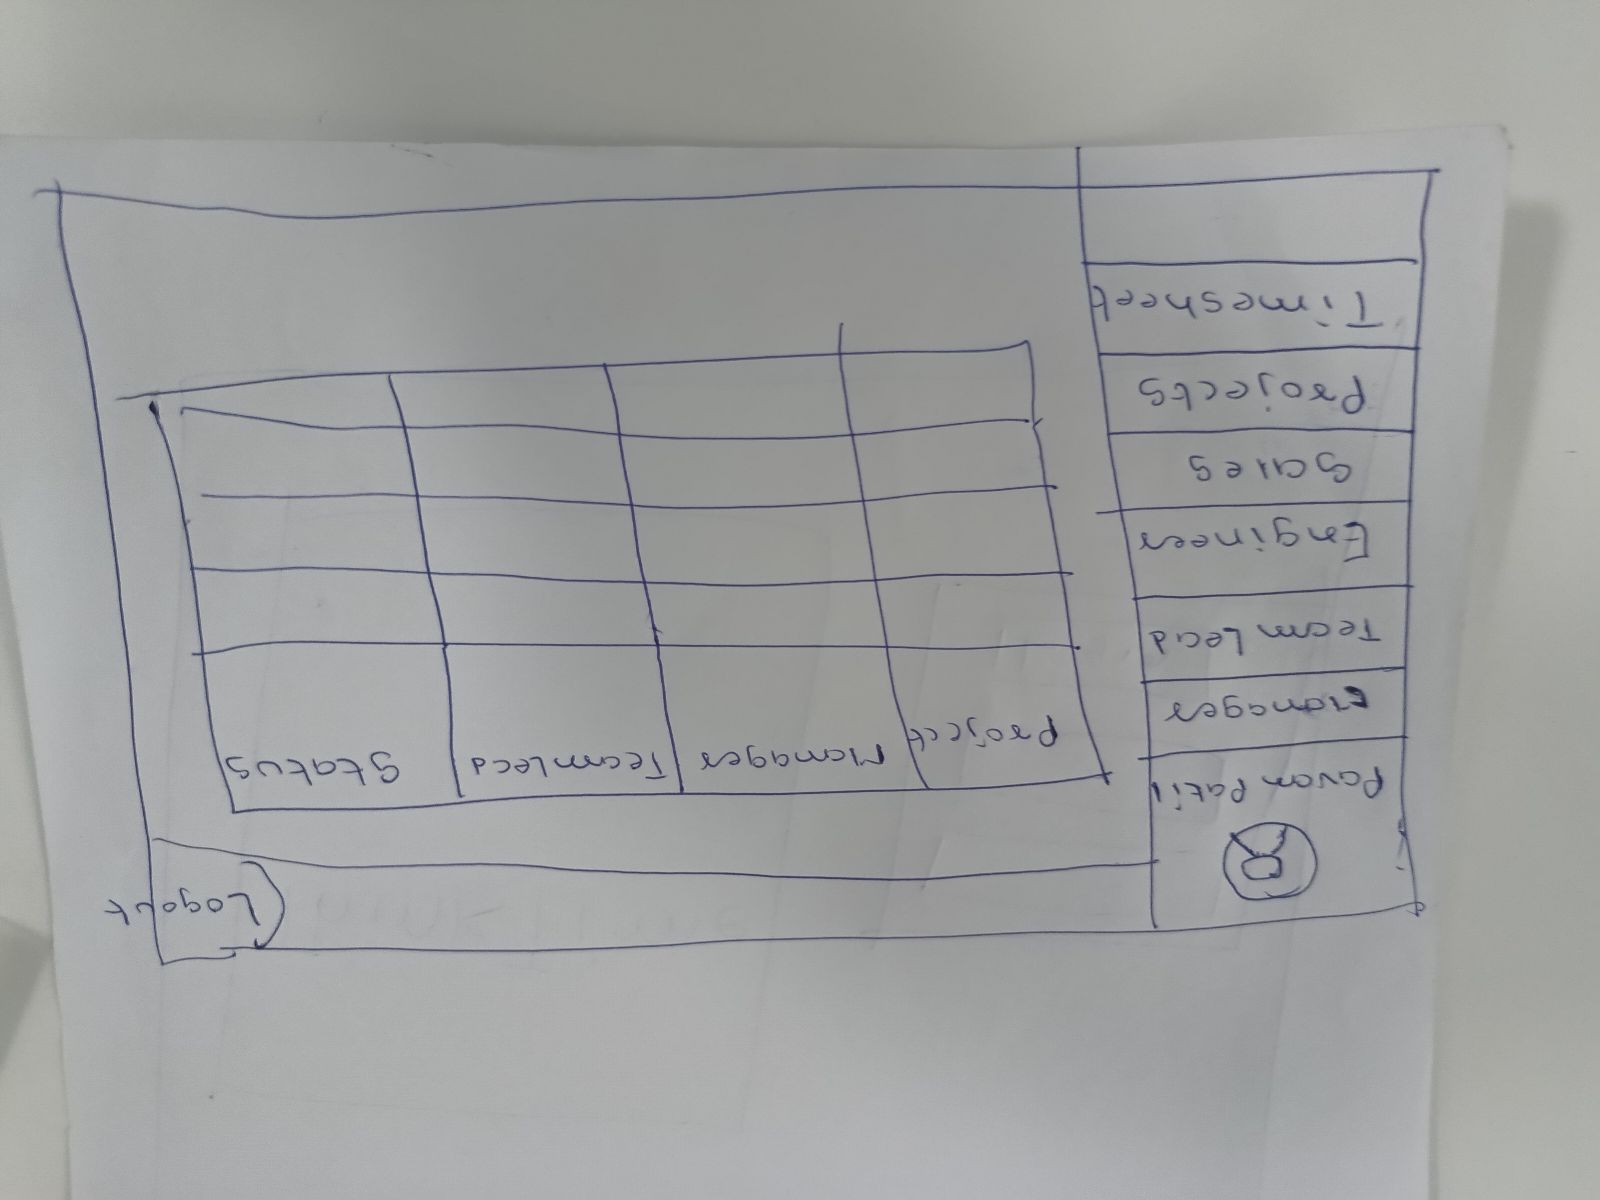 Logout
Pavan Patil
Manager
Team Lead
Engineer
Sales
Projects
Timesheet
Project Manager TeamLead Status